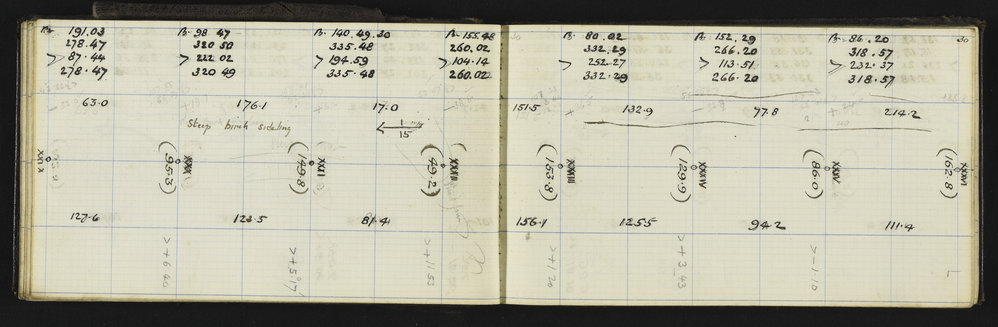 B. 191.03 B. 98 47 B. 140.49.30 B. 155.48
278.47 320 50 335.48 260.02
> 87.44 > 222 02 > 194.59 > 104.14
278.47 320 49 335.48 260.02
63.0 176.1 17.0
Steep birch sideling
1
15
XXIX XXX XXXI XXXII
(95.3) (149.8) (49.2)
127.6 123.5 81.4
>+6 >+5 >+1153
30
B. 80.02 B. 152.29 B. 86.20
332.29 266.20 318.57
> 252.27 > 113.51 > 232.37
332.29 266.20 318.57
151.5 + 132.9 77.8 214.2
XXXIII XXXIV XXXV XXXVI
(153.8) (129.9) (86.0) (162.8)
156.1 125.5 94.2 111.4
>+120 >+3.43 >-1.10